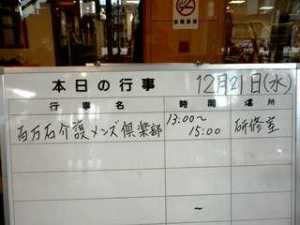 本日の行事 12月21日(水)
行事名 時間 場所
百万石介護メンズ倶楽部 13:00〜 15:00 研修室
〜